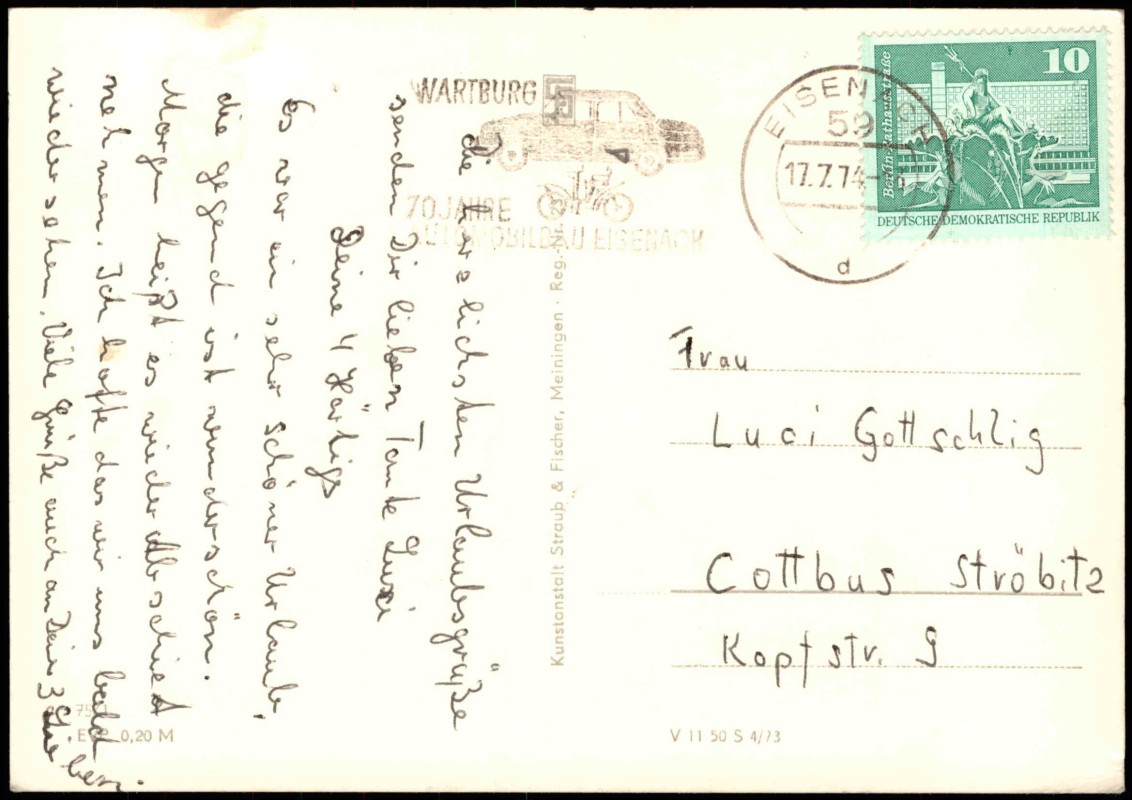 Die herzlichsten Urlaubsgrüße
senden Dir lieben Tante Luzi
Deine 4 Härtigs
Es war ein sehr schöner Urlaub,
die gegend ist wunderschön.
Morgen heißt es wieder Abschied
nehmen. Ich hoffe das wir uns bald
wieder sehen. Viele Grüße auch an Deine 3
WARTBURG
70 JAHRE
AUTOMOBILBAU EISENACH
EISENACH
59
17.7.74
d
10
Berlin-Rathausstraße
DEUTSCHE DEMOKRATISCHE REPUBLIK
Kunstanstalt Straub & Fischer, Meiningen · Reg.-Nr. 23
Frau
Luci Gottschlig
Cottbus Ströbitz
Kopfstr. 9
EVP 0,20 M
V 11 50 S 4/73